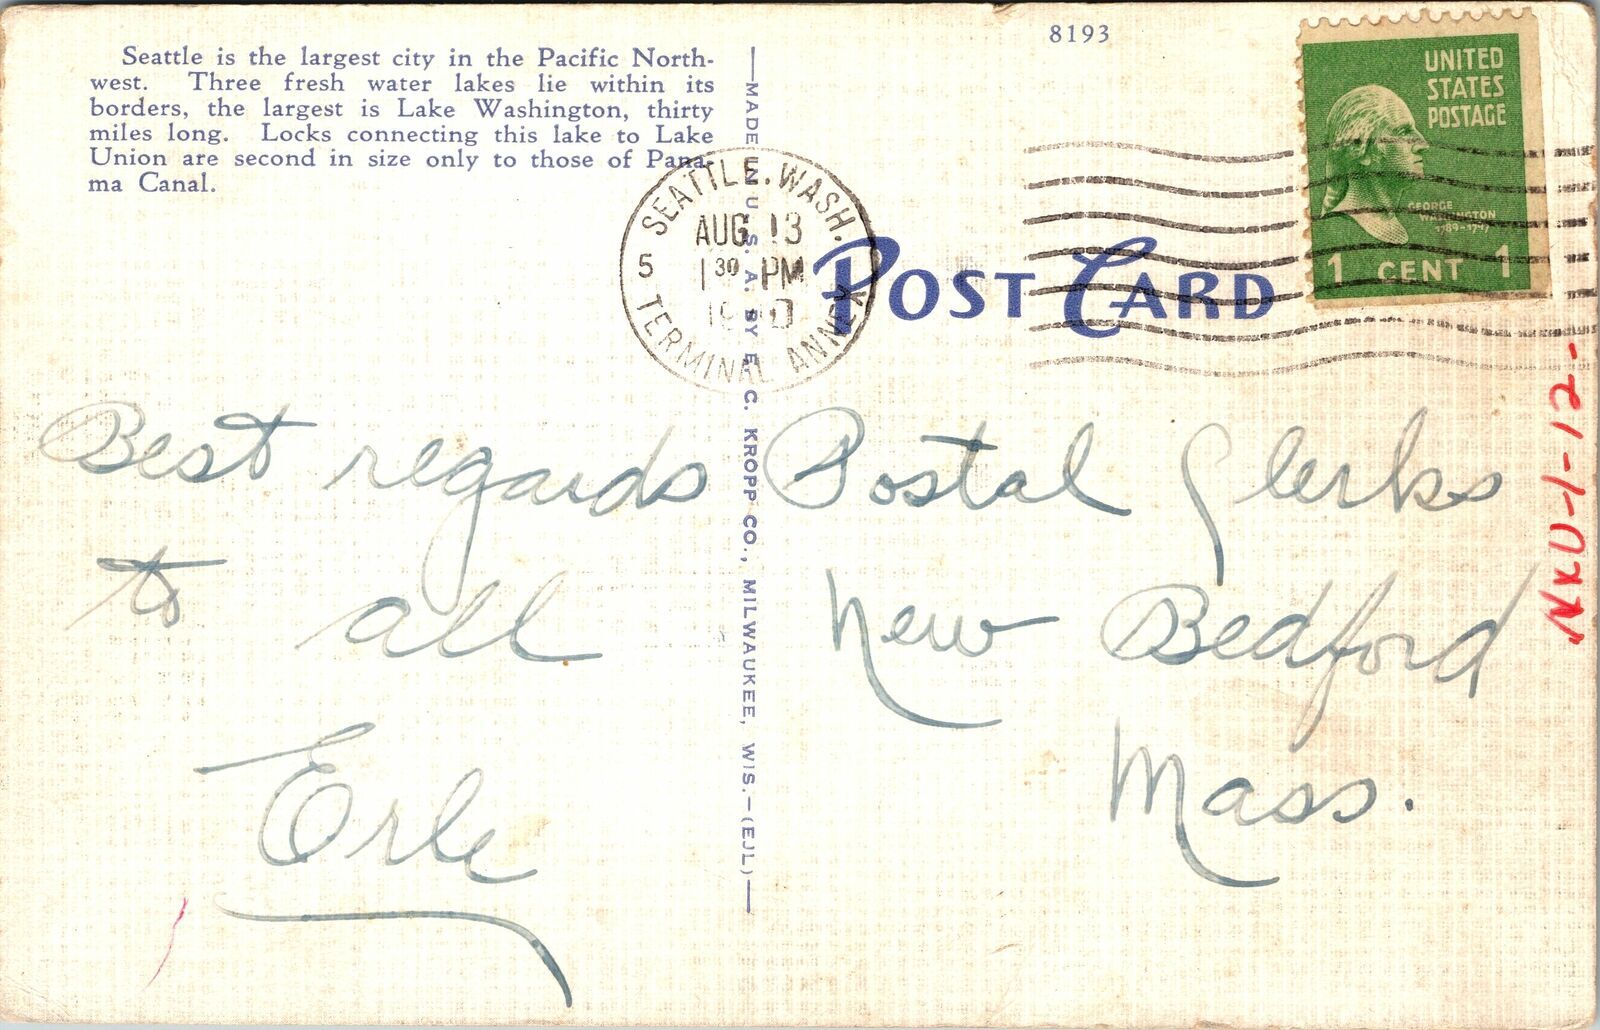 Seattle is the largest city in the Pacific North-
west. Three fresh water lakes lie within its
borders, the largest is Lake Washington, thirty
miles long. Locks connecting this lake to Lake
Union are second in size only to those of Pana-
ma Canal.
8193
UNITED
STATES
POSTAGE
GEORGE
WASHINGTON
1789-1797
1 CENT 1
SEATTLE, WASH.
AUG 13
1 30 PM
5
TERMINAL ANNEX
POST CARD
MADE IN U. S. A. BY E. C. KROPP CO., MILWAUKEE, WIS.-(EJL)
Best regards
to all
Erle
Postal Clerks
New Bedford
Mass.
NXU-1-12-